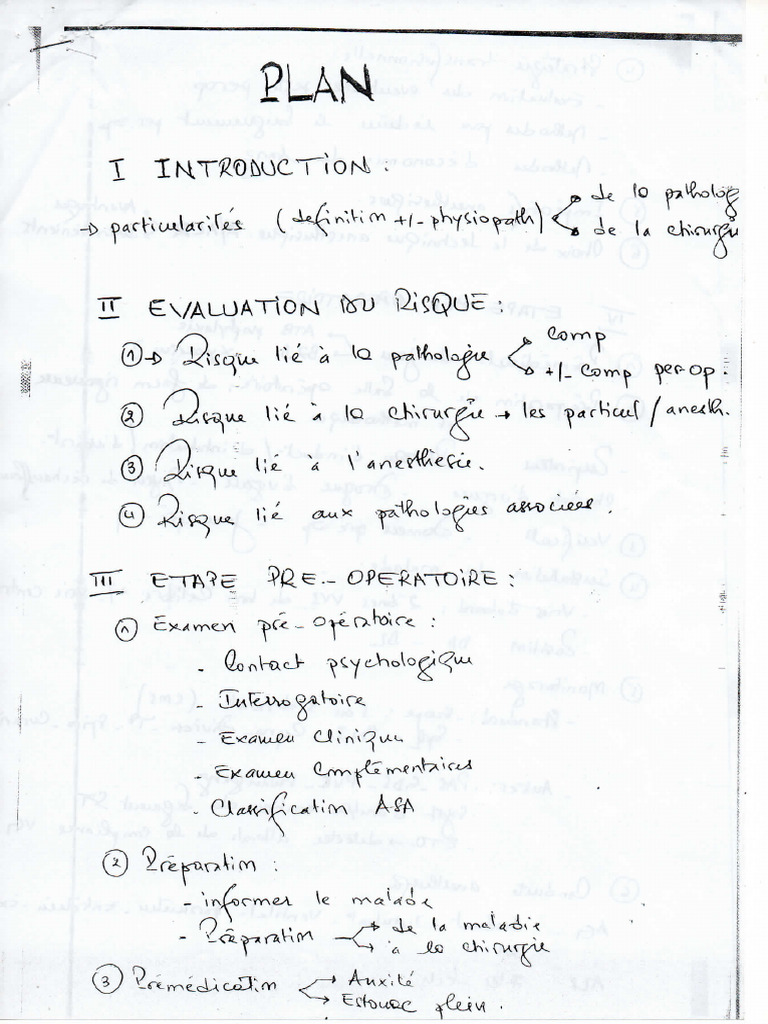 PLAN
I INTRODUCTION :
→ particularités (definition +/- physiopath) < de la patholog
de la chirurgie
II EVALUATION DU RISQUE :
① → Risque lié à la pathologie < comp
+/- comp perop
② Risque lié à la chirurgie → les particul / anesth.
③ Risque lié à l'anesthesie.
④ Risque lié aux pathologies associées.
III ETAPE PRE-OPERATOIRE :
① Examen pré-opératoire :
- Contact psychologique
- Interrogatoire
- Examen Clinique
- Examen Complémentaires
- Classification ASA
② Préparation :
- informer le malade
- Préparation → de la maladie
→ à la chirurgie
③ Prémédication → Anxité
→ Estomac plein.